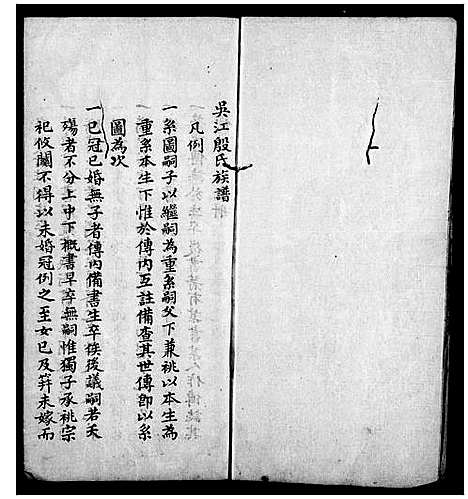 吳江殷氏族譜
凡例
一系圖嗣子以繼嗣為重系嗣父下兼祧以本生為
重系本生下惟於傳內互註備查其世傳即以系
圖為次
一已冠已婚無子者傳內備書生卒俟後議嗣若夭
殤者不分上中下概書早卒無嗣惟獨子承祧宗
祀攸關不得以未婚冠例之至女已及筓未嫁而